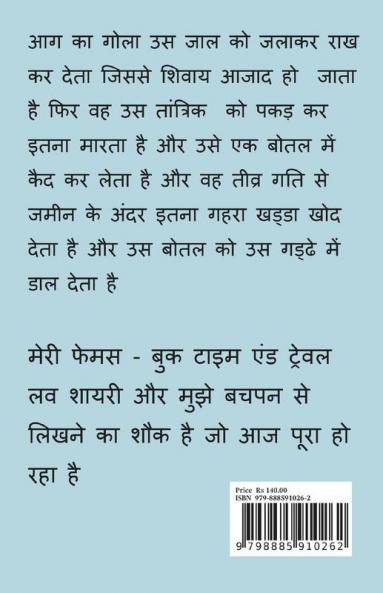 आग का गोला उस जाल को जलाकर राख
कर देता जिससे शिवाय आजाद हो जाता
है फिर वह उस तांत्रिक को पकड़ कर
इतना मारता है और उसे एक बोतल में
कैद कर लेता है और वह तीव्र गति से
जमीन के अंदर इतना गहरा खड्डा खोद
देता है और उस बोतल को उस गड्ढे में
डाल देता है
मेरी फेमस - बुक टाइम एंड ट्रेवल
लव शायरी और मुझे बचपन से
लिखने का शौक है जो आज पूरा हो
रहा है
Price Rs 140.00
ISBN 979-888591026-2
9 798885 910262